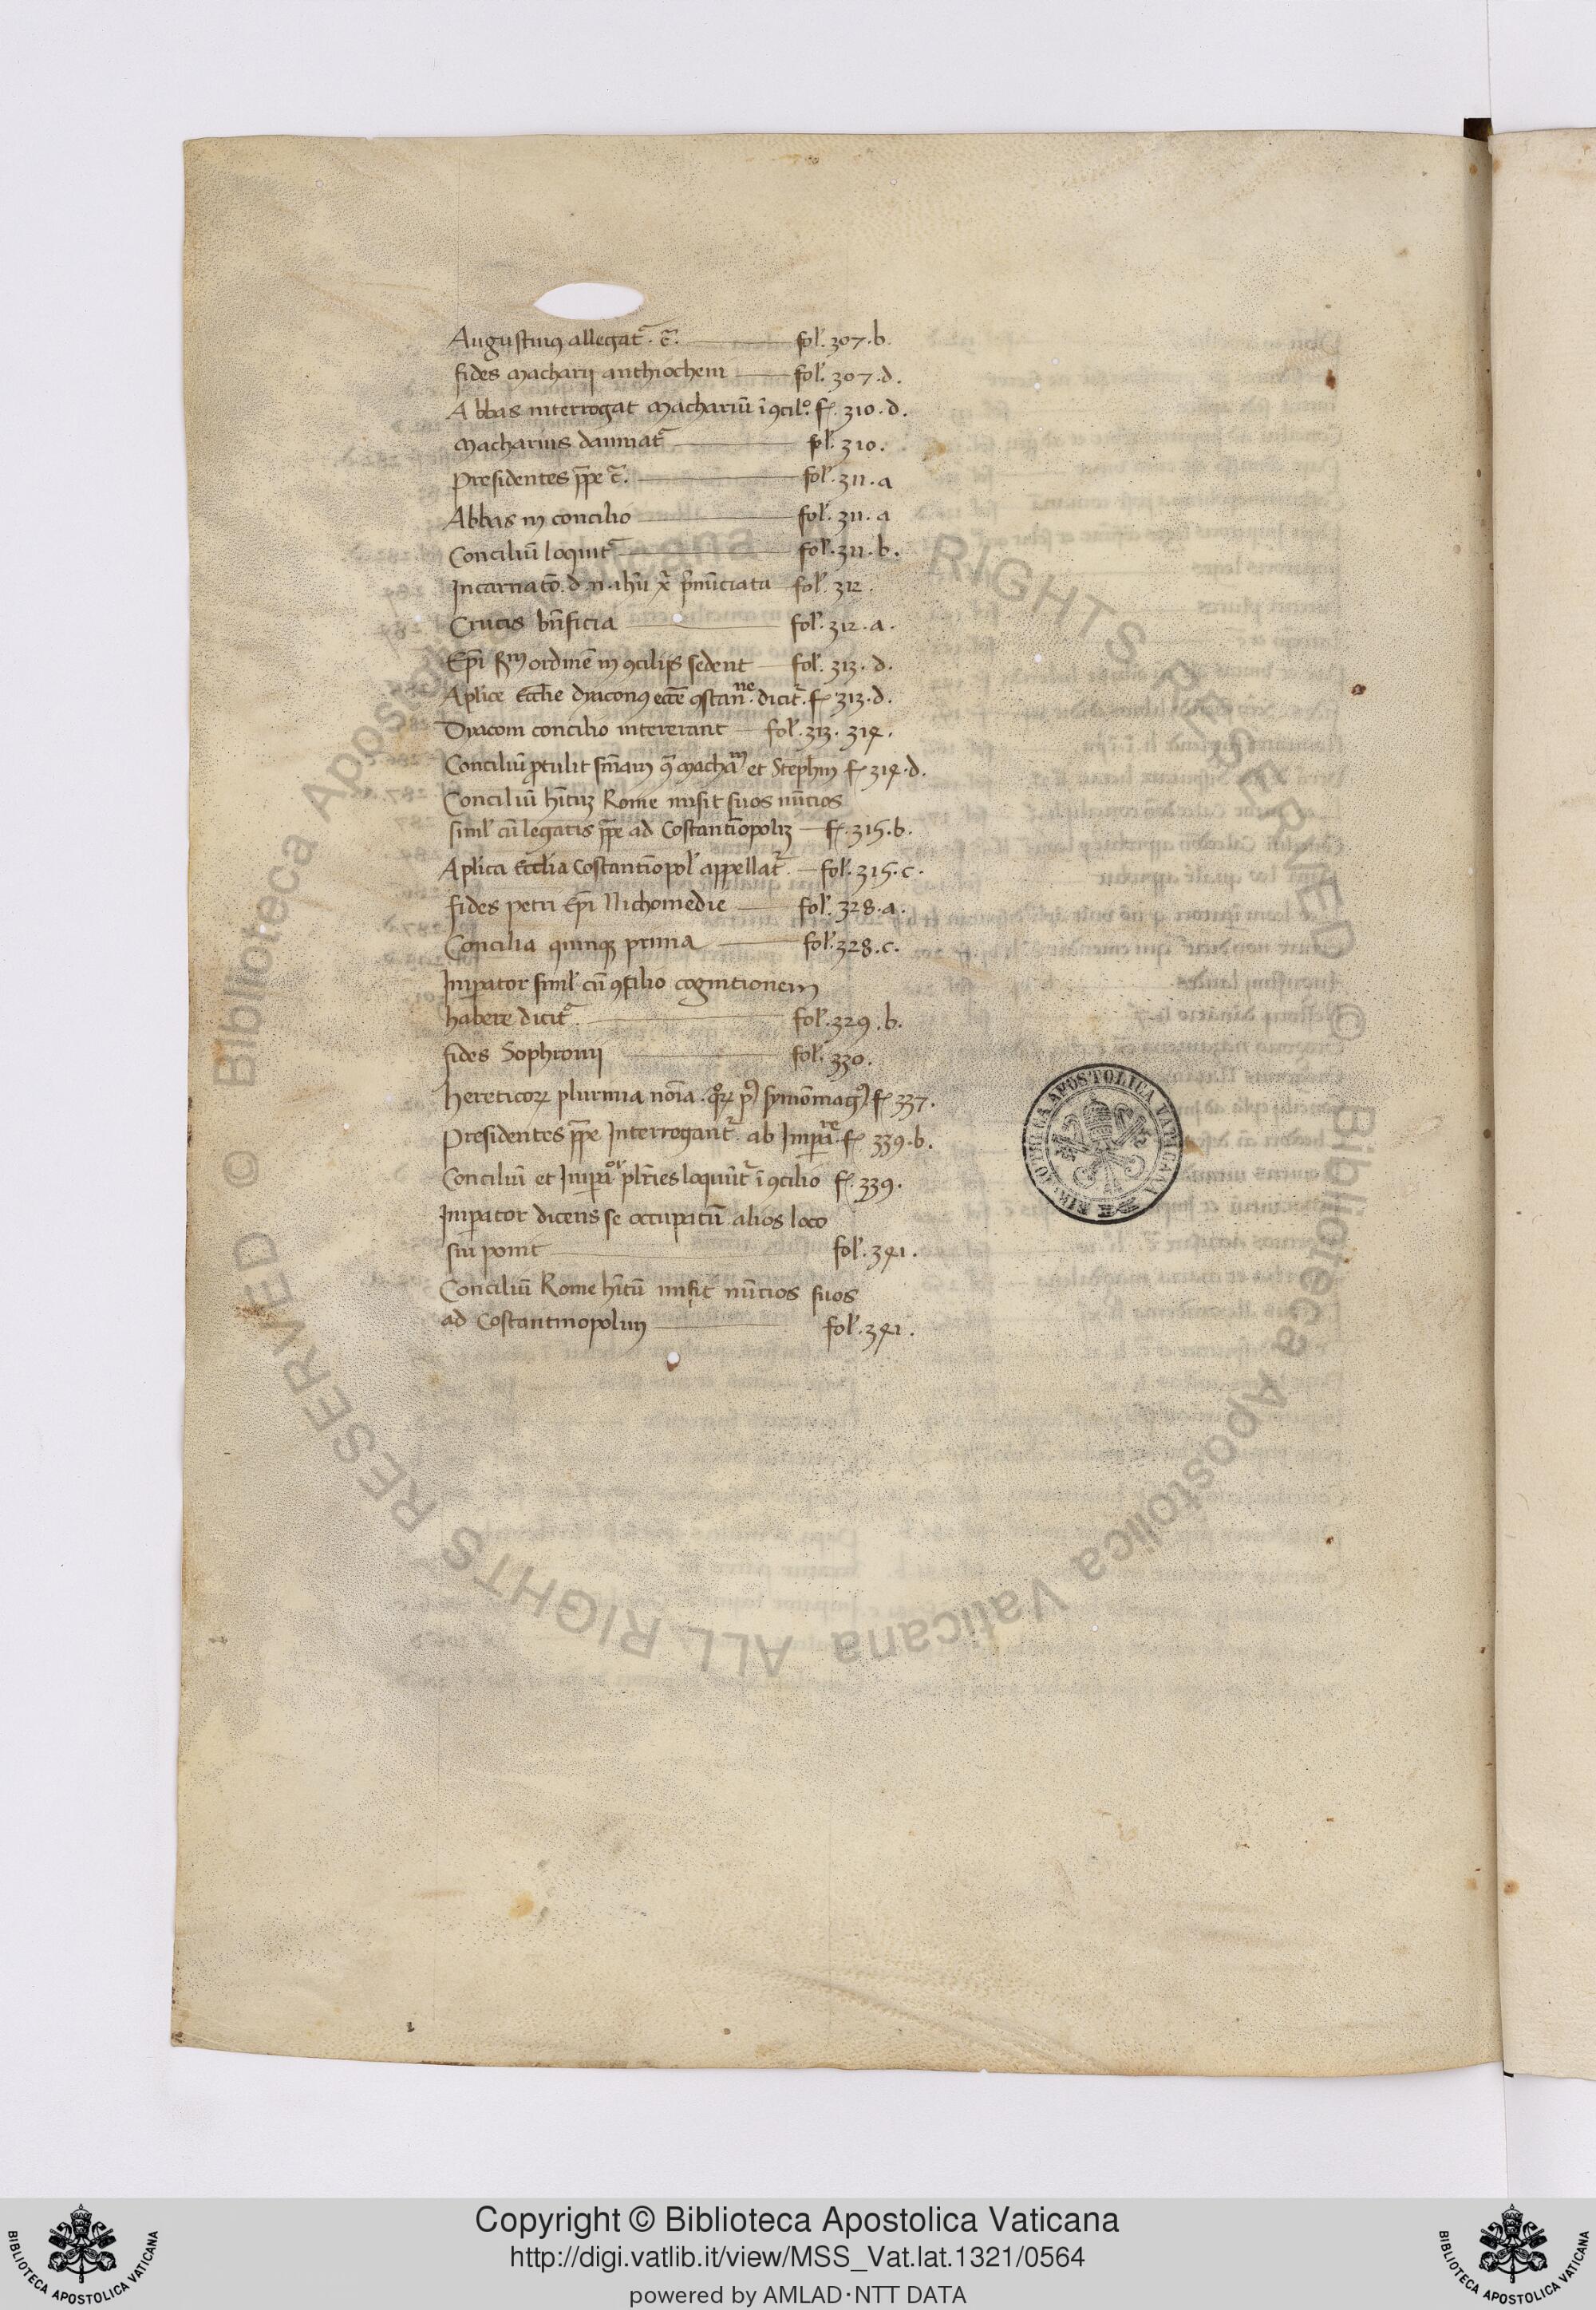 Augustinus allegat᷑. c̄. fol. 307. b.
fides Macharij anthiocheni fol. 307. d.
Abbas interrogat Machariū ī ꝯcilº. f. 310. d.
Macharius damnat᷑ fol. 310.
Presidentes ꝑpe c̄. fol. 311. a
Abbas in concilio fol. 311. a
Conciliū loquit᷑ fol. 311. b.
Incarnatō. d. n. ihū x̄ p̄nūciata fol. 312.
Crucis bn̄ficia fol. 312. a.
Ep̄i ordinē in ꝯcilijs sedent fol. 313. d.
Aplice Ecclie dyaconus ecc̄e ꝯstan.ne dicit᷑. f. 313. d.
Dyaconi concilio intererant fol. 313. 314.
Conciliū ꝓtulit sn̄iam et Stephm f. 314. d.
Conciliū hītuꝫ Rome misit suos nūcios
simil' cū legatis pp̄e ad Costantīopolꝫ f. 315. b.
Aplica Ecclia Costantīopol' appellat᷑. fol. 315. c.
fides petri Ep̄i Nichomedie fol. 328. a.
Concilia quinqꝫ prima fol. 328. c.
Imperator simil' cū ꝯsilio cognitionem
habere dicit᷑. fol. 329. b.
fides Sophronij fol. 330.
hereticoꝝ plurima noīa. f. 337.
Presidentes pp̄e Interrogant᷑. ab Imꝑa.re f. 339. b.
Conciliū et Imꝑa.or plr̄ies loquūt᷑ ī ꝯcilio f. 339.
Imꝑator dicens se occupatū alios loco
sui ponit fol. 341.
Conciliū Rome hītū misit nūcios suos
ad Costantinopolim fol. 341.
BIBLIOTHECA APOSTOLICA VATICANA
© Biblioteca Apostolica Vaticana ALL RIGHTS RESERVED
© Biblioteca Apostolica Vaticana ALL RIGHTS RESERVED
Copyright © Biblioteca Apostolica Vaticana
http://digi.vatlib.it/view/MSS_Vat.lat.1321/0564
powered by AMLAD·NTT DATA
BIBLIOTECA APOSTOLICA VATICANA
BIBLIOTECA APOSTOLICA VATICANA